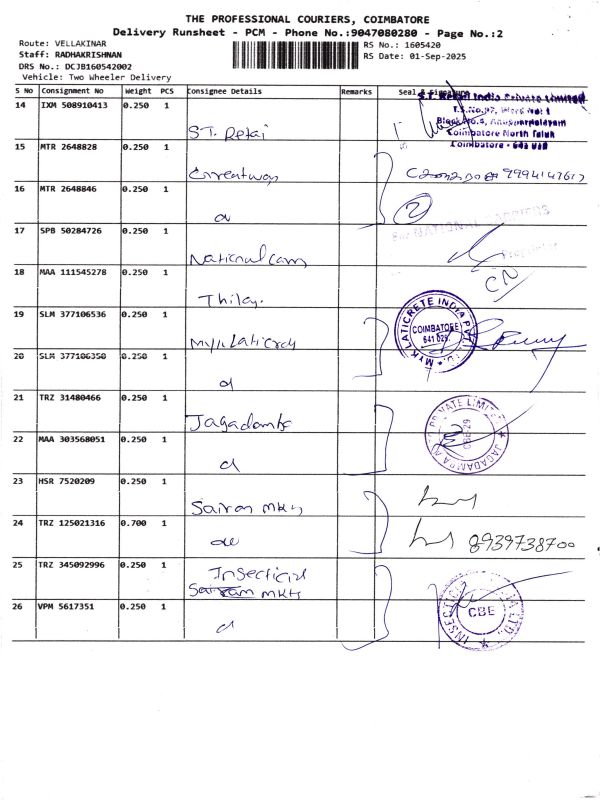 THE PROFESSIONAL COURIERS, COIMBATORE
Delivery Runsheet - PCM - Phone No.:9047080280 - Page No.:2
Route: VELLAKINAR
Staff: RADHAKRISHNAN
DRS No.: DCJB160542002
Vehicle: Two Wheeler Delivery
RS No.: 1605420
RS Date: 01-Sep-2025
S No Consignment No Weight PCS Consignee Details Remarks Seal & Signature
S.T. Retail India Private Limited
T.S.No.97, Ward No: 1
Block No.4, Anupparpalayam
Coimbatore North Taluk
Coimbatore - 641 018
14 IXM 508910413 0.250 1
ST. Retai
15 MTR 2648828 0.250 1
9994147617
16 MTR 2648846 0.250 1
2
For NATIONAL CARRIERS
Proprietor
17 SPB 50284726 0.250 1
National carr
CN
18 MAA 111545278 0.250 1
Thilag.
19 SLM 377106536 0.250 1
Myk Laticrey
MYK LATICRETE INDIA PVT. LTD.
COIMBATORE
641 029.
20 SLM 377106350 0.250 1
d
21 TRZ 31480466 0.250 1
Jagadamba
PRIVATE LIMITED
CBE-29
JAGADAMBA
22 MAA 303568051 0.250 1
d
23 HSR 7520209 0.250 1
Sairam MKtg
24 TRZ 125021316 0.700 1
do
8939738700
25 TRZ 345092996 0.250 1
Insecticid
Sairam MKtg
26 VPM 5617351 0.250 1
d
INSECTICI
CBE